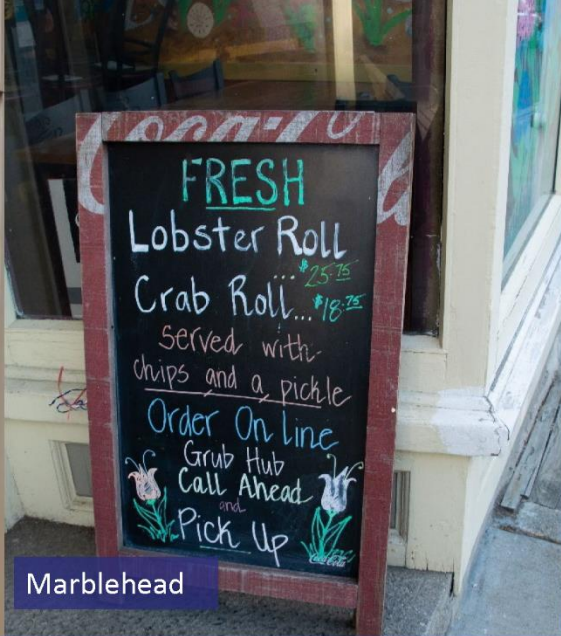 Coca-Cola
FRESH
Lobster Roll
... $25.75
Crab Roll... $18.75
served with
chips and a pickle
Order On line
Grub Hub
Call Ahead
and
Pick Up
Coca-Cola
Marblehead